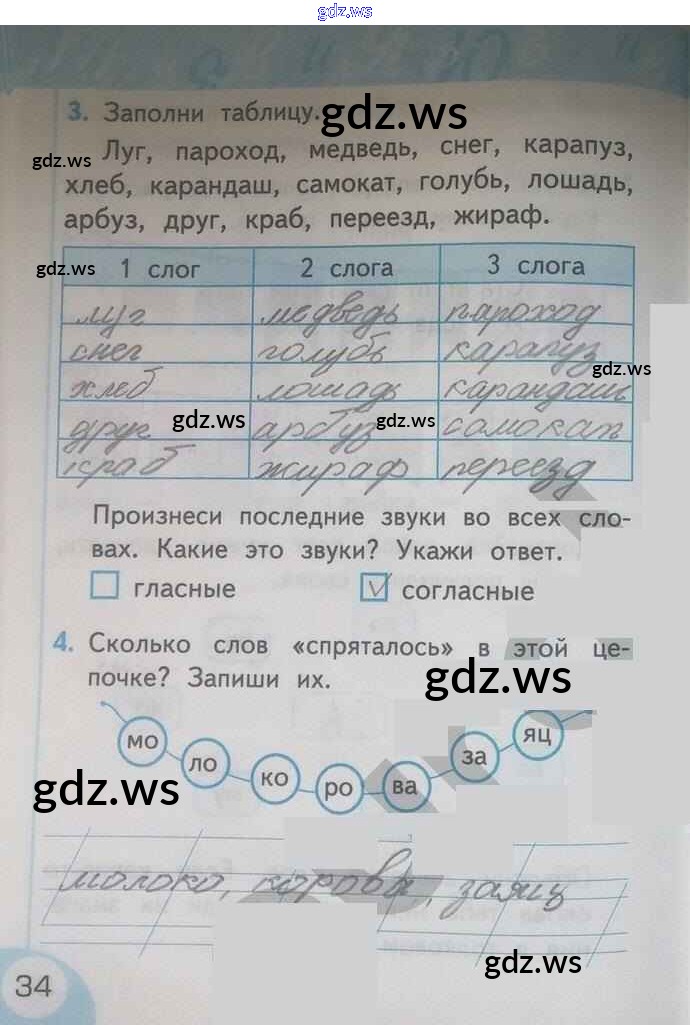 gdz.ws
3. Заполни таблицу. gdz.ws
gdz.ws Луг, пароход, медведь, снег, карапуз,
хлеб, карандаш, самокат, голубь, лошадь,
арбуз, друг, краб, переезд, жираф.
gdz.ws 1 слог 2 слога 3 слога
луг медведь пароход
снег голубь карапуз
gdz.ws
хлеб лошадь карандаш
друг gdz.ws арбуз gdz.ws самокат
краб жираф переезд
Произнеси последние звуки во всех сло-
вах. Какие это звуки? Укажи ответ.
гласные V согласные
4. Сколько слов «спряталось» в этой це-
почке? Запиши их. gdz.ws
мо ло ко ро ва за яц
gdz.ws
молоко, корова, заяц
gdz.ws
34